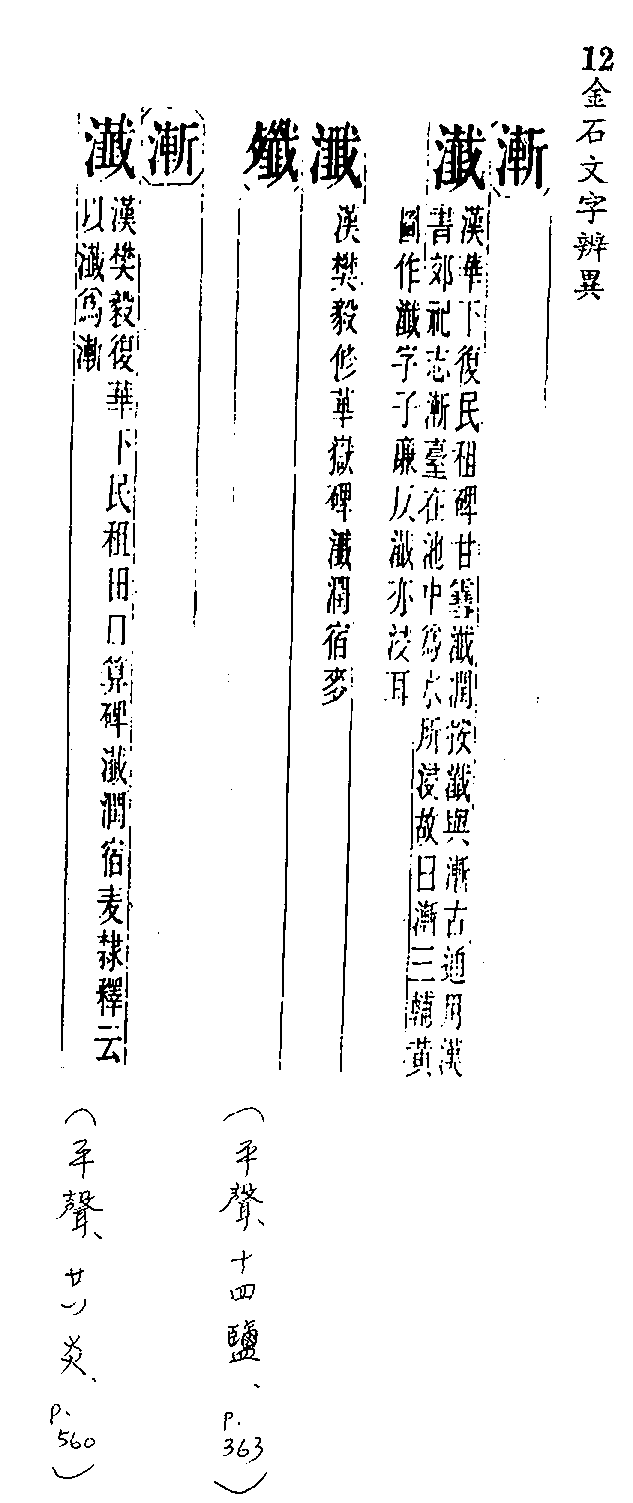 12金石文字辨異
漸
瀸
漢華下復民租碑甘瀸潤按瀸與漸古通用漢
書郊祀志漸臺在池中爲水所浸故曰漸三輔黃
圖作瀸字子廉以瀸亦浸耳
瀸
漢樊毅修華嶽碑瀸潤宿麥
殲
（平聲、十四鹽、p.363）
漸
瀸
漢樊毅復華下民租田口算碑瀸潤宿麦隸釋云
以瀸爲漸
（平聲、廿八炎、p.560）